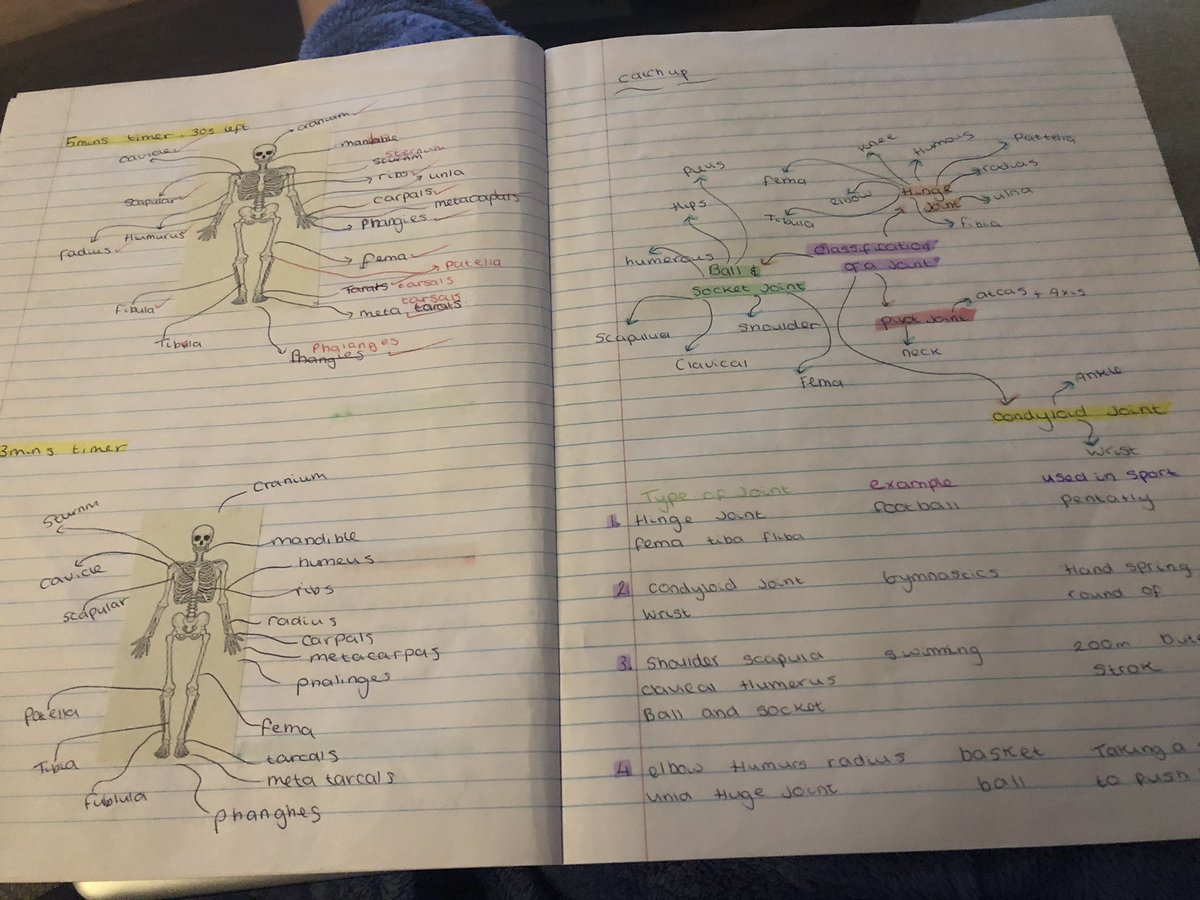 5mins timer . 30s left
cranium
cavicle
mandable
sternum
sturnm
ribs
unla
scapular
carpals
metacaprals
Phangies
Humurus
radius
fema
Patella
Tarals tarsals
tarsals
meta tarcals
Fibula
Tibula
Phalanges
Phangies
3mins timer
cranium
Sturnm
mandible
humeus
cavicle
ribs
scapular
radius
carpals
metacarpas
phalinges
Patella
fema
Tibia
tarcals
meta tarcals
fublula
phanghes
catch up
knee
Humous
Pattella
Pelvis
fema
radias
elbow
Hinge
Joint
ulna
Hips
Tibula
fibia
classification
of a Joint
humerous
Ball &
Socket Joint
atcas + Axis
Pivot Joint
Scapulua
Shoulder
neck
Clavical
fema
Ankle
Condyloid Joint
Wrist
Type of Joint
example
used in sport
1. Hinge Joint
football
Pentatly
fema tiba fluba
2. Condyloid Joint
Gymnastics
Hand spring
Wrist
round of
3. Shoulder scapula
swimming
200m
clavical Humerus
Strok
Ball and socket
4. elbow Humurs radius
basket
Taking a
unla Huge Joint
ball
to push